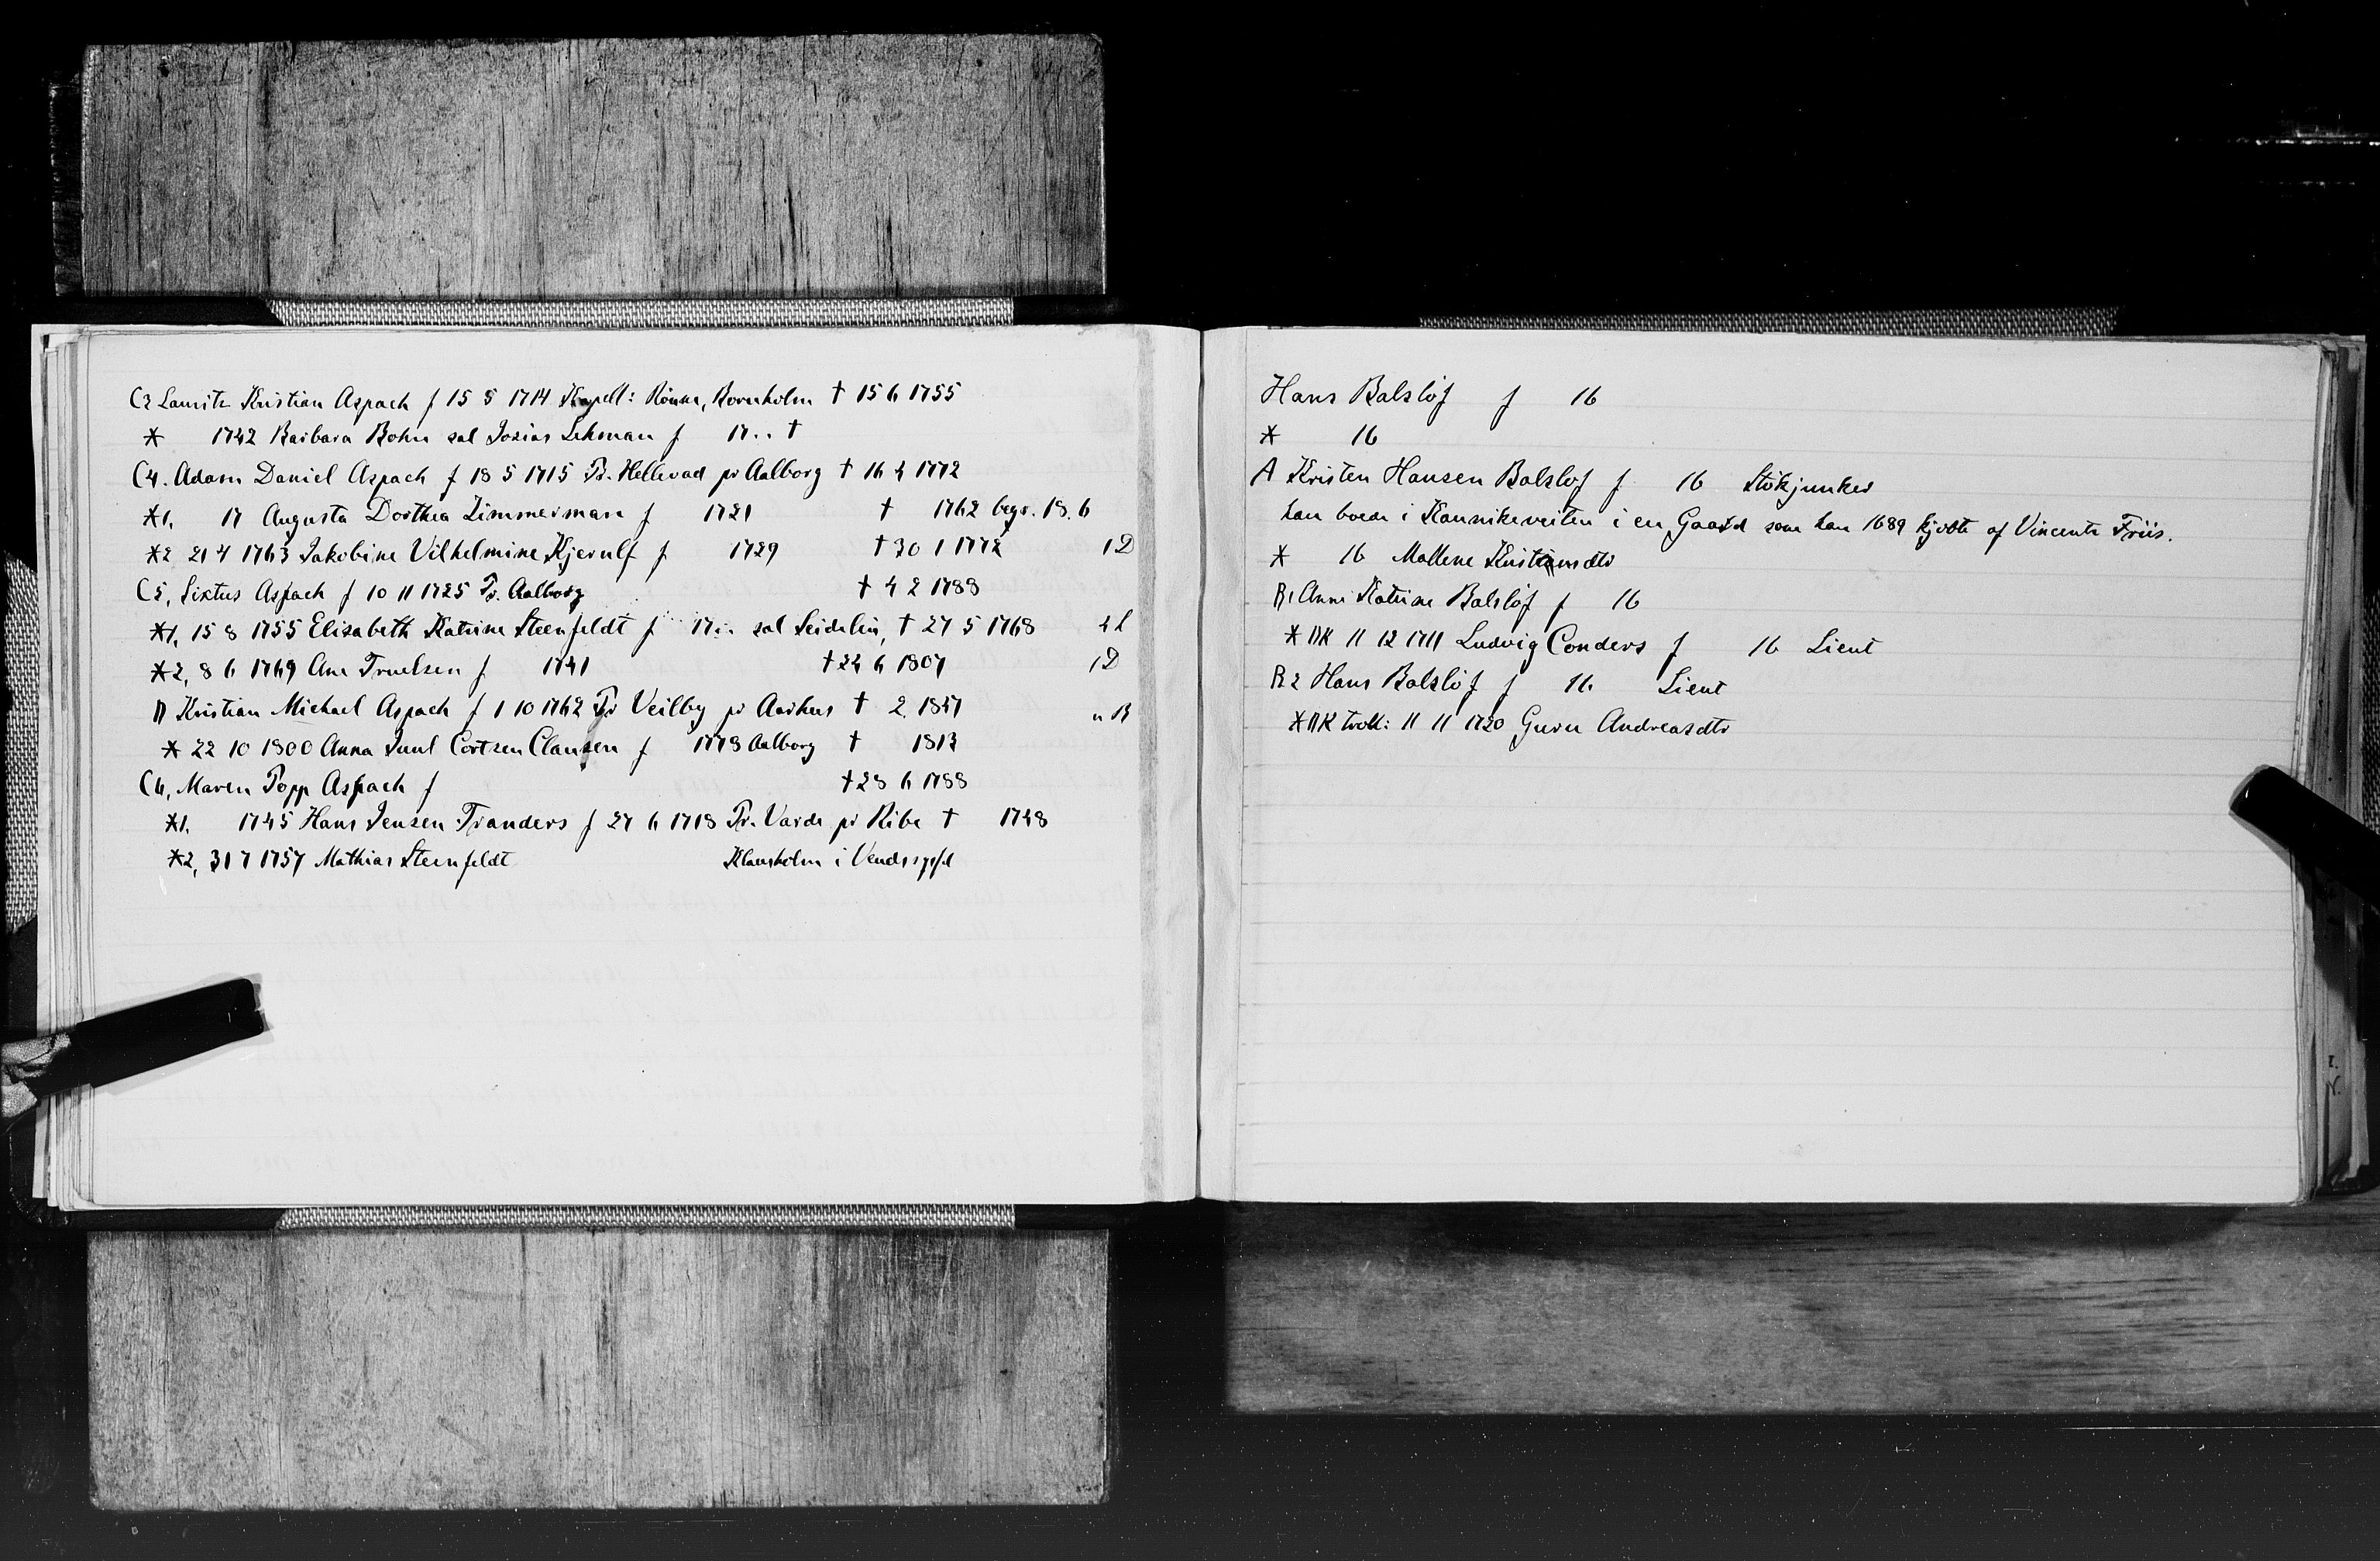 C3 Lauritz Kristian Aspach f 15 5 1714 Kapell: Rönne, Bornholm † 15 6 1755
* 1742 Barbara Bohn sal Josias Lehman f 17.. †
C4. Adam Daniel Aspach f 18 5 1715 Pr. Hellevad pr Aalborg † 16 4 1772
*1. 17 Augusta Dorthea Zimmerman f 1721 † 1762 begr. 18. 6
*2 21 4 1763 Jakobine Vilhelmine Kjerulf f 1729 † 30 1 1772 1D
C5, Sixtus Aspach f 10 11 1725 Pr. Aalborg † 4 2 1788
*1, 15 8 1755 Elisabeth Katrine Steenfeldt f 17.. sal Seidelin, † 27 5 1768
*2, 8 6 1769 Ane Truelsen f 1741 † 24 6 1807 1D
D Kristian Michael Aspach f 1 10 1762 Pr Veilby pr Aarhus † 2. 1847
* 22 10 1800 Anna Juul Cortsen Clausen f 1778 Aalborg † 1813
C6, Maren Popp Aspach f † 28 6 1788
*1. 1745 Hans Jensen Tranders f 27 6 1718 Pr. Varde pr Ribe † 1748
*2, 31 7 1757 Mathias Steenfeldt Klausholm i Vendsyssel
Hans Balslöf f 16
* 16
A Kristen Hansen Balslöf f 16 Stökjunker
han boede i Kannikeveiten i en Gaard som han 1689 kjöbte af Vincents Friis.
* 16 Mallene
B1 Anne Katrine Balslöf f 16
* DK 11 12 1711 Ludvig Conders f 16 Lieut
B2 Hans Balslöf f 16 Lieut
* DK trol: 11 11 1720 Guru Andreasdtr